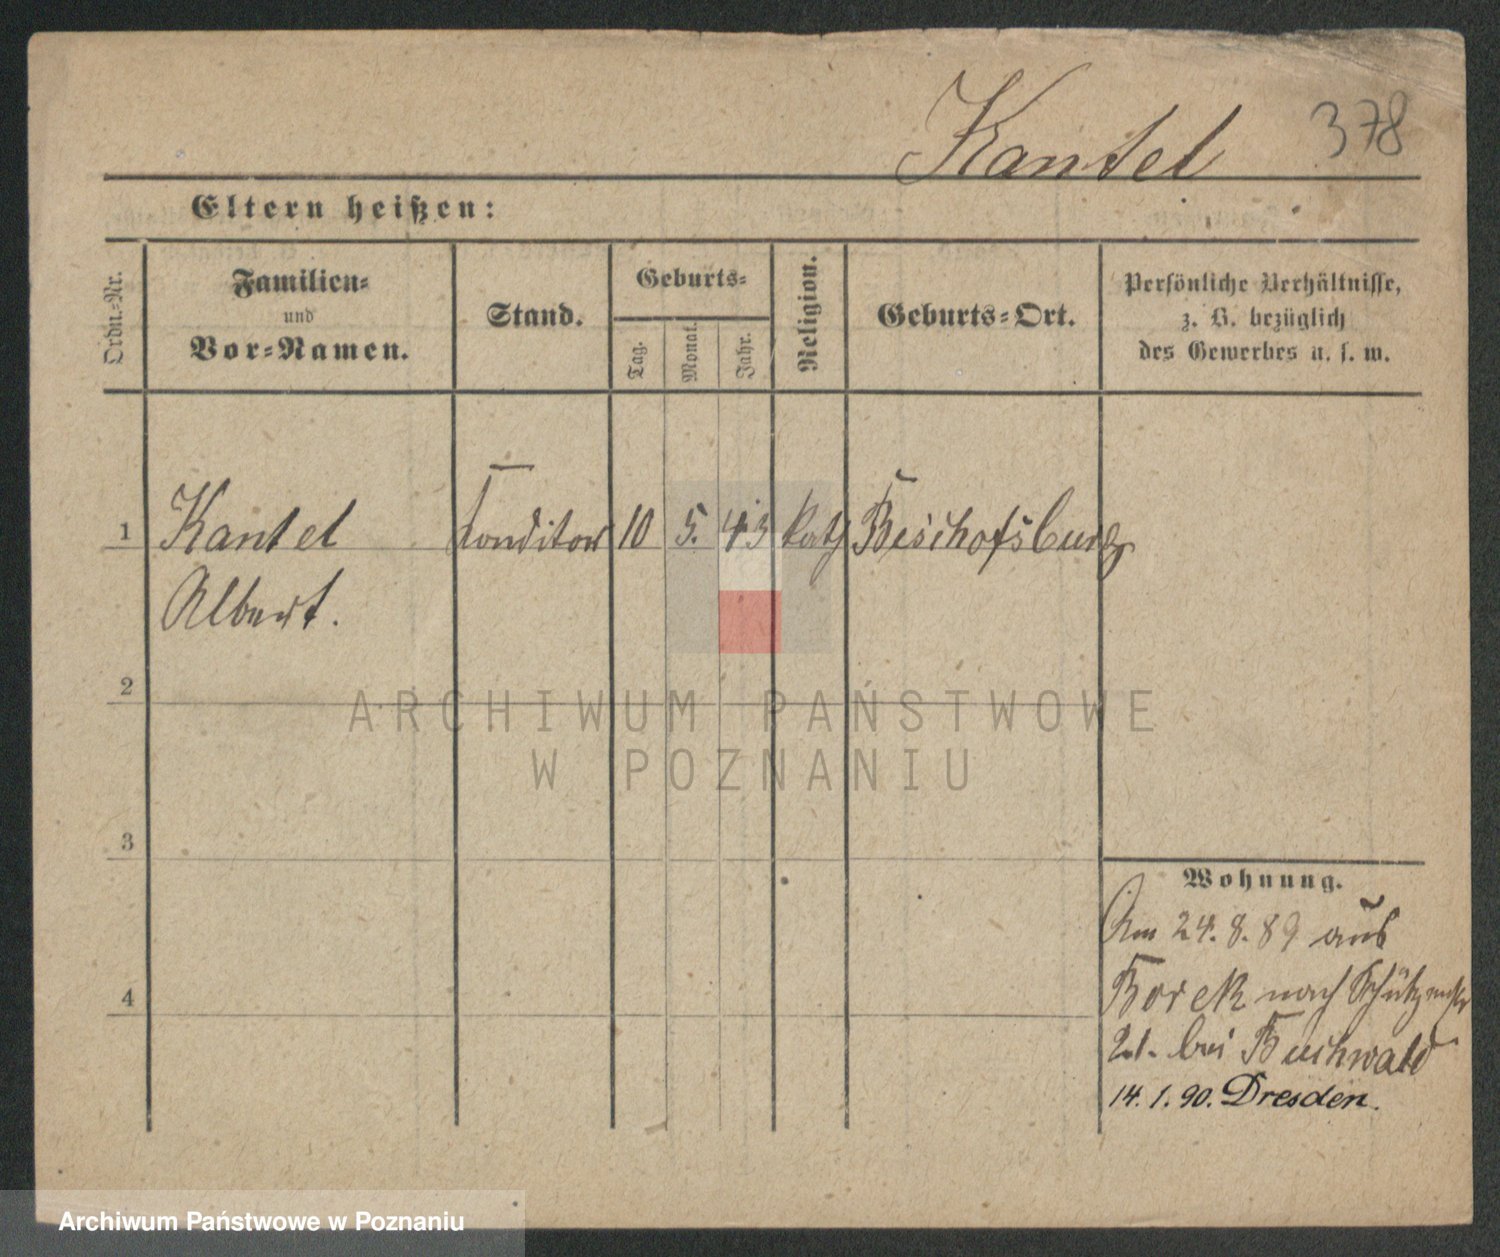 Kantel 378
Eltern heißen:
Ordn.-Nr.
Familien-
und
Vor-Namen.
Stand.
Geburts-
Tag.
Monat.
Jahr.
Religion.
Geburts-Ort.
Persönliche Verhältnisse,
z. B. bezüglich
des Gewerbes u. s. w.
1 Kantel Conditor 10 5. 43 kath Bischofsburg
Albert.
2
ARCHIWUM PAŃSTWOWE
W POZNANIU
3
Wohnung.
Am 24. 8. 89 aus
4
Borek nach Schützenstr
21. bei Buchwald
14. 1. 90. Dresden.
Archiwum Państwowe w Poznaniu